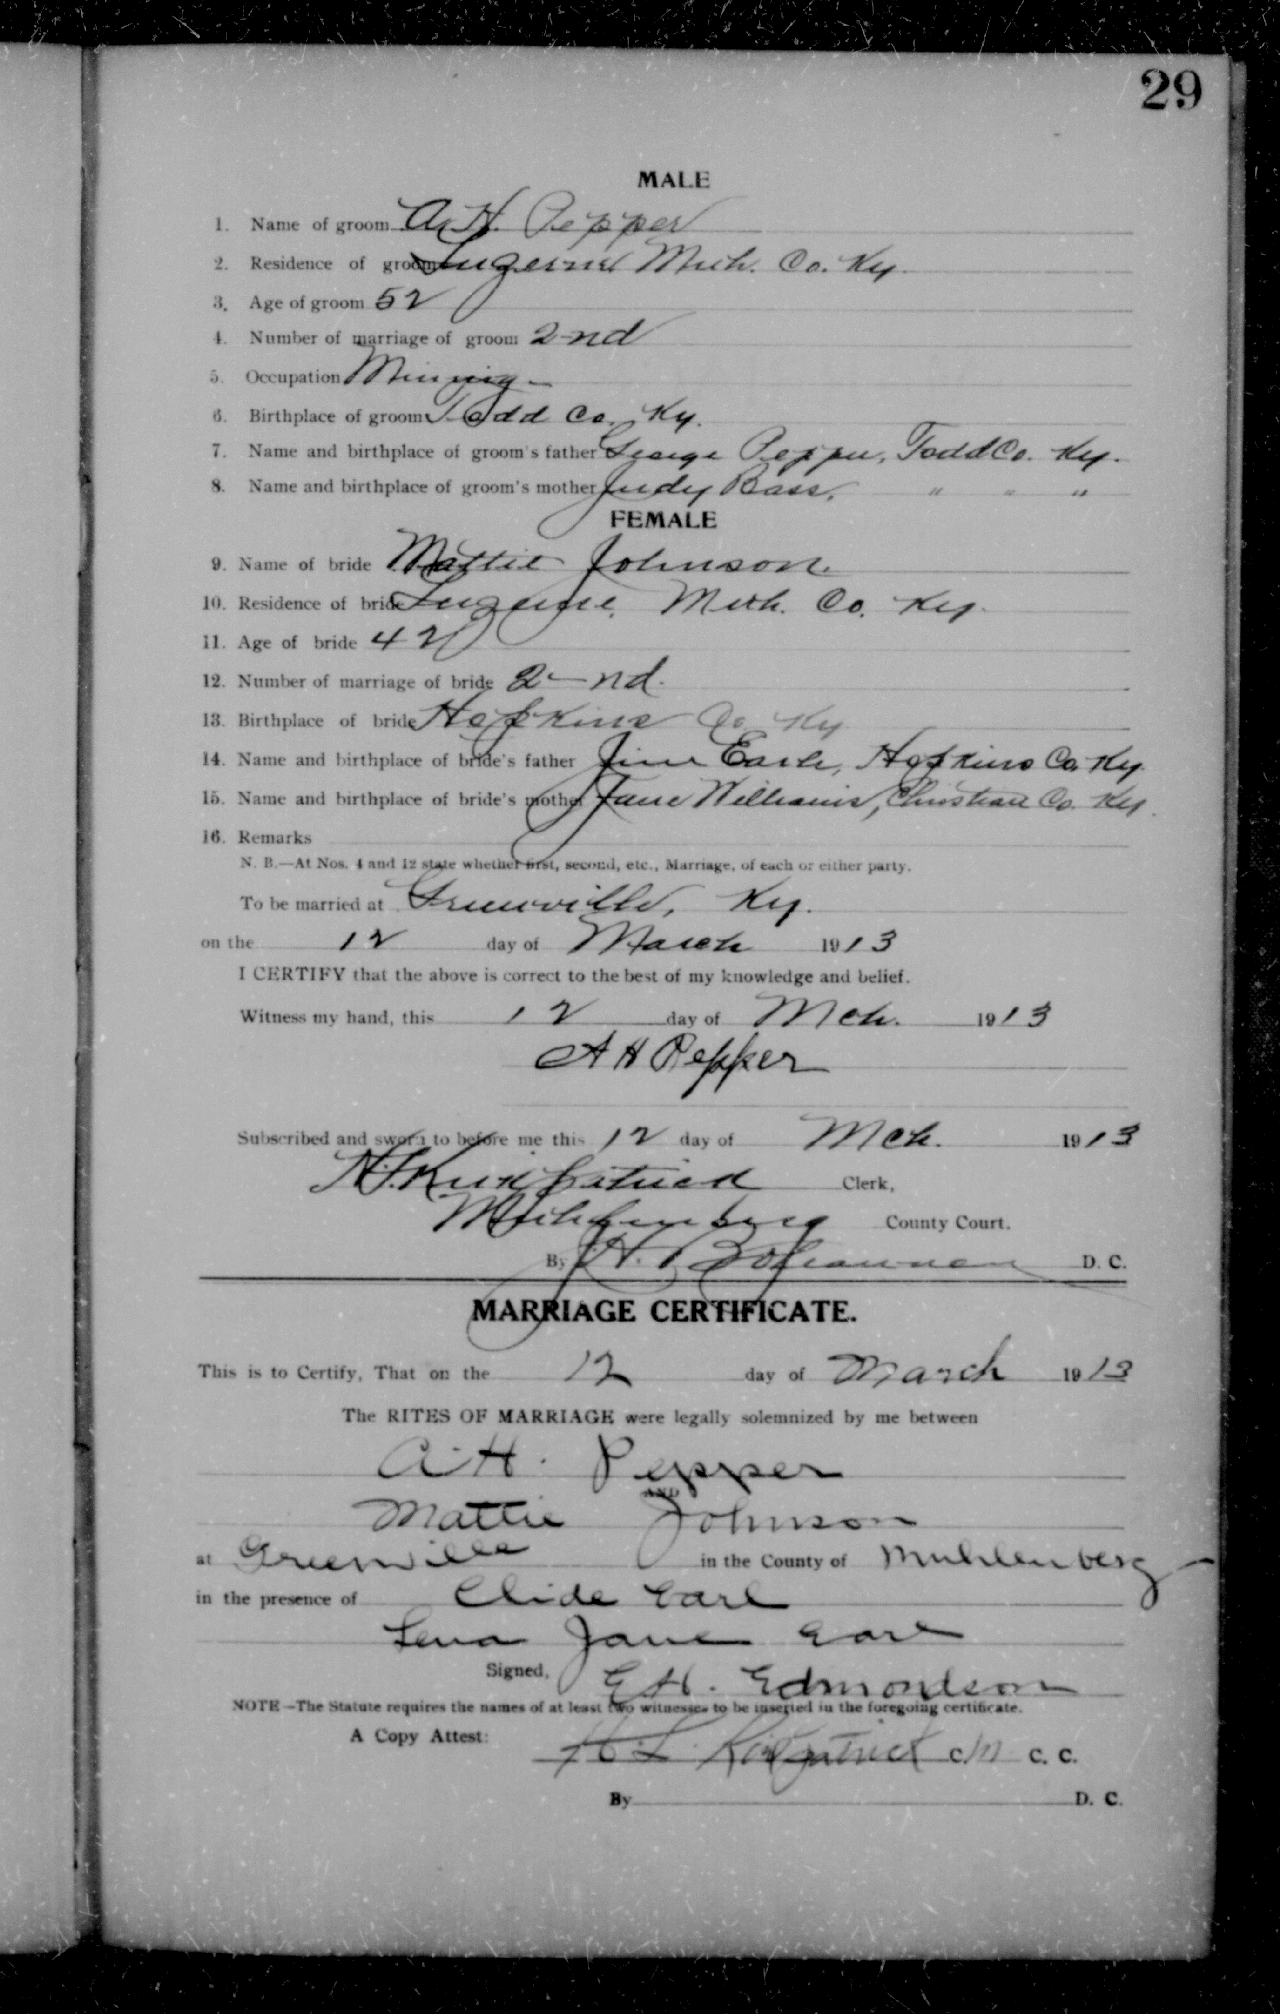 29
MALE
1. Name of groom A. H. Pepper
2. Residence of groom Luzerne Muh. Co. Ky.
3. Age of groom 52
4. Number of marriage of groom 2-nd
5. Occupation Mining
6. Birthplace of groom Todd Co. Ky.
7. Name and birthplace of groom's father George Pepper, Todd Co. Ky.
8. Name and birthplace of groom's mother Judy Bass, " " "
FEMALE
9. Name of bride Mattie Johnson.
10. Residence of bride Luzerne, Muh. Co. Ky.
11. Age of bride 42
12. Number of marriage of bride 2-nd.
13. Birthplace of bride Hopkins Co Ky
14. Name and birthplace of bride's father Jim Earle, Hopkins Co. Ky.
15. Name and birthplace of bride's mother Jane Williams, Christian Co. Ky.
16. Remarks
N. B.—At Nos. 4 and 12 state whether first, second, etc., Marriage, of each or either party.
To be married at Greenville, Ky.
on the 12 day of March 1913
I CERTIFY that the above is correct to the best of my knowledge and belief.
Witness my hand, this 12 day of Mch. 1913
A H Pepper
Subscribed and sworn to before me this 12 day of Mch. 1913
H. L. Kirkpatrick Clerk,
Muhlenberg County Court.
By Bohannon D. C.
MARRIAGE CERTIFICATE.
This is to Certify, That on the 12 day of March 1913
The RITES OF MARRIAGE were legally solemnized by me between
A. H. Pepper
AND
Mattie Johnson
at Greenville in the County of Muhlenberg
in the presence of Clide Earl
Lena Jane Earl
Signed, E. H. Edmondson
NOTE—The Statute requires the names of at least two witnesses to be inserted in the foregoing certificate.
A Copy Attest: H. L. Kirkpatrick C M C. C.
By D. C.